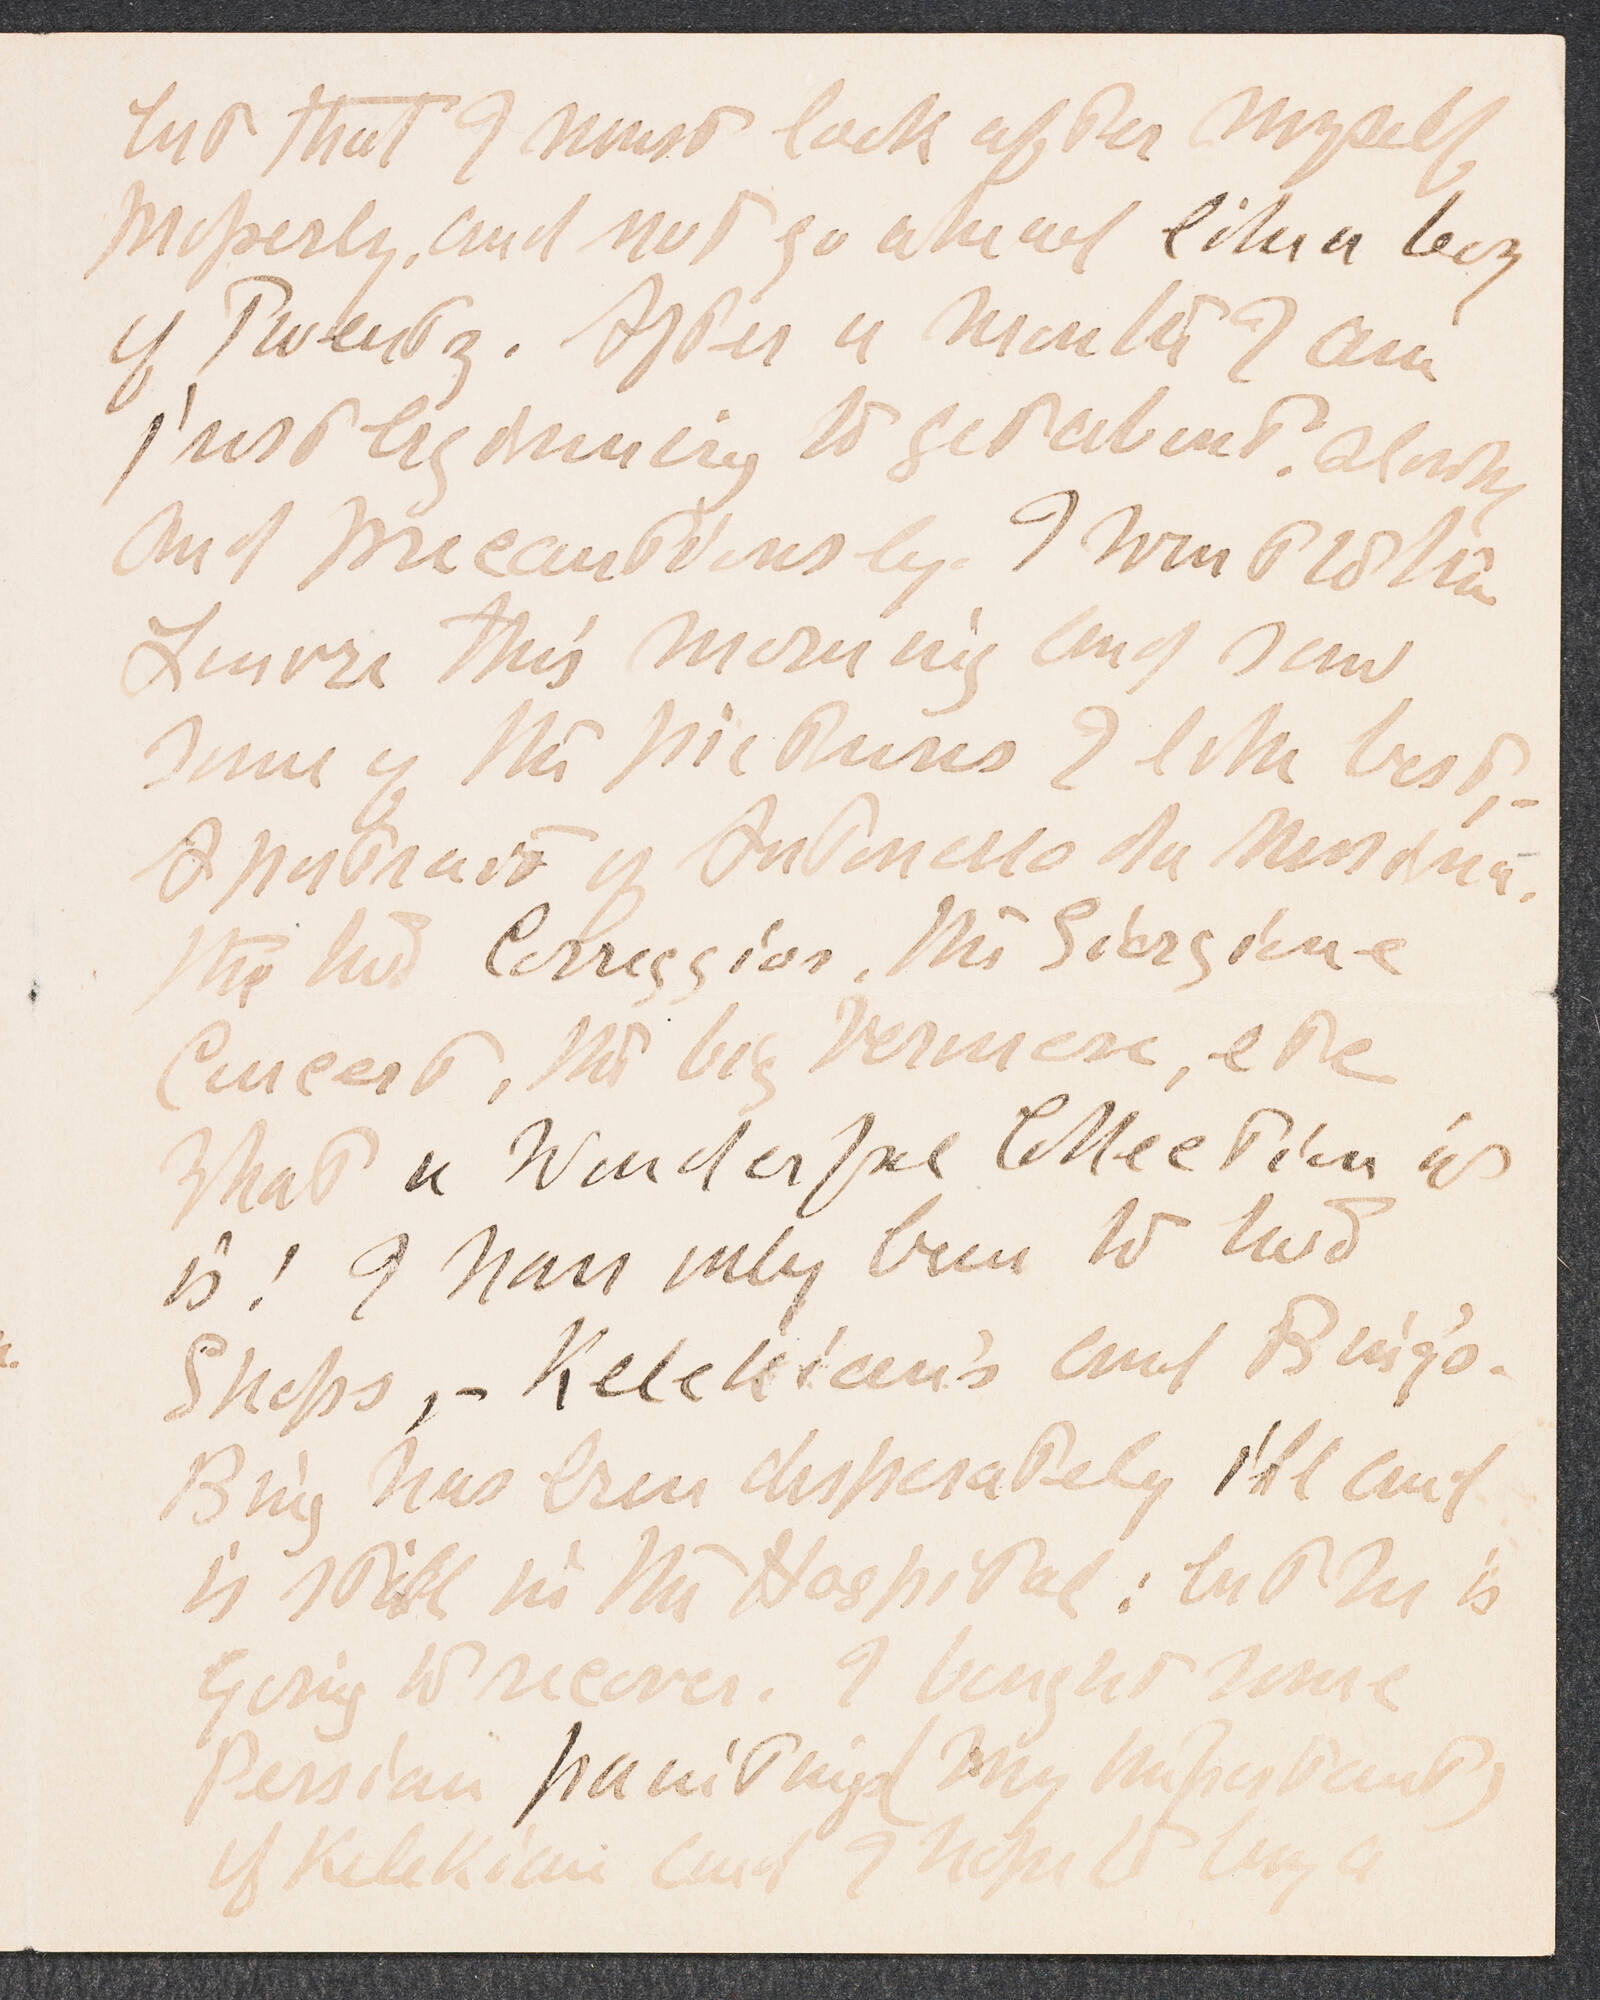 but that I must look after myself
properly, and not go ahead like a boy
of Twenty. After a month I am
just beginning to get about, slowly
and precautiously. I went to the
Louvre this morning and saw
some of the pictures I like best,-
A portrait of Antonello da Messina.
the two Correggios, the Giorgione
Concert, the big Vermeer, etc
What a wonderful collection it
is! I have only been to two
Shops,- Kelekian's and Bing's.
Bing has been desperately ill and
is still in the Hospital; but he is
going to recover. I bought some
Persian paintings (very important)
of Kelekian and I hope to buy a